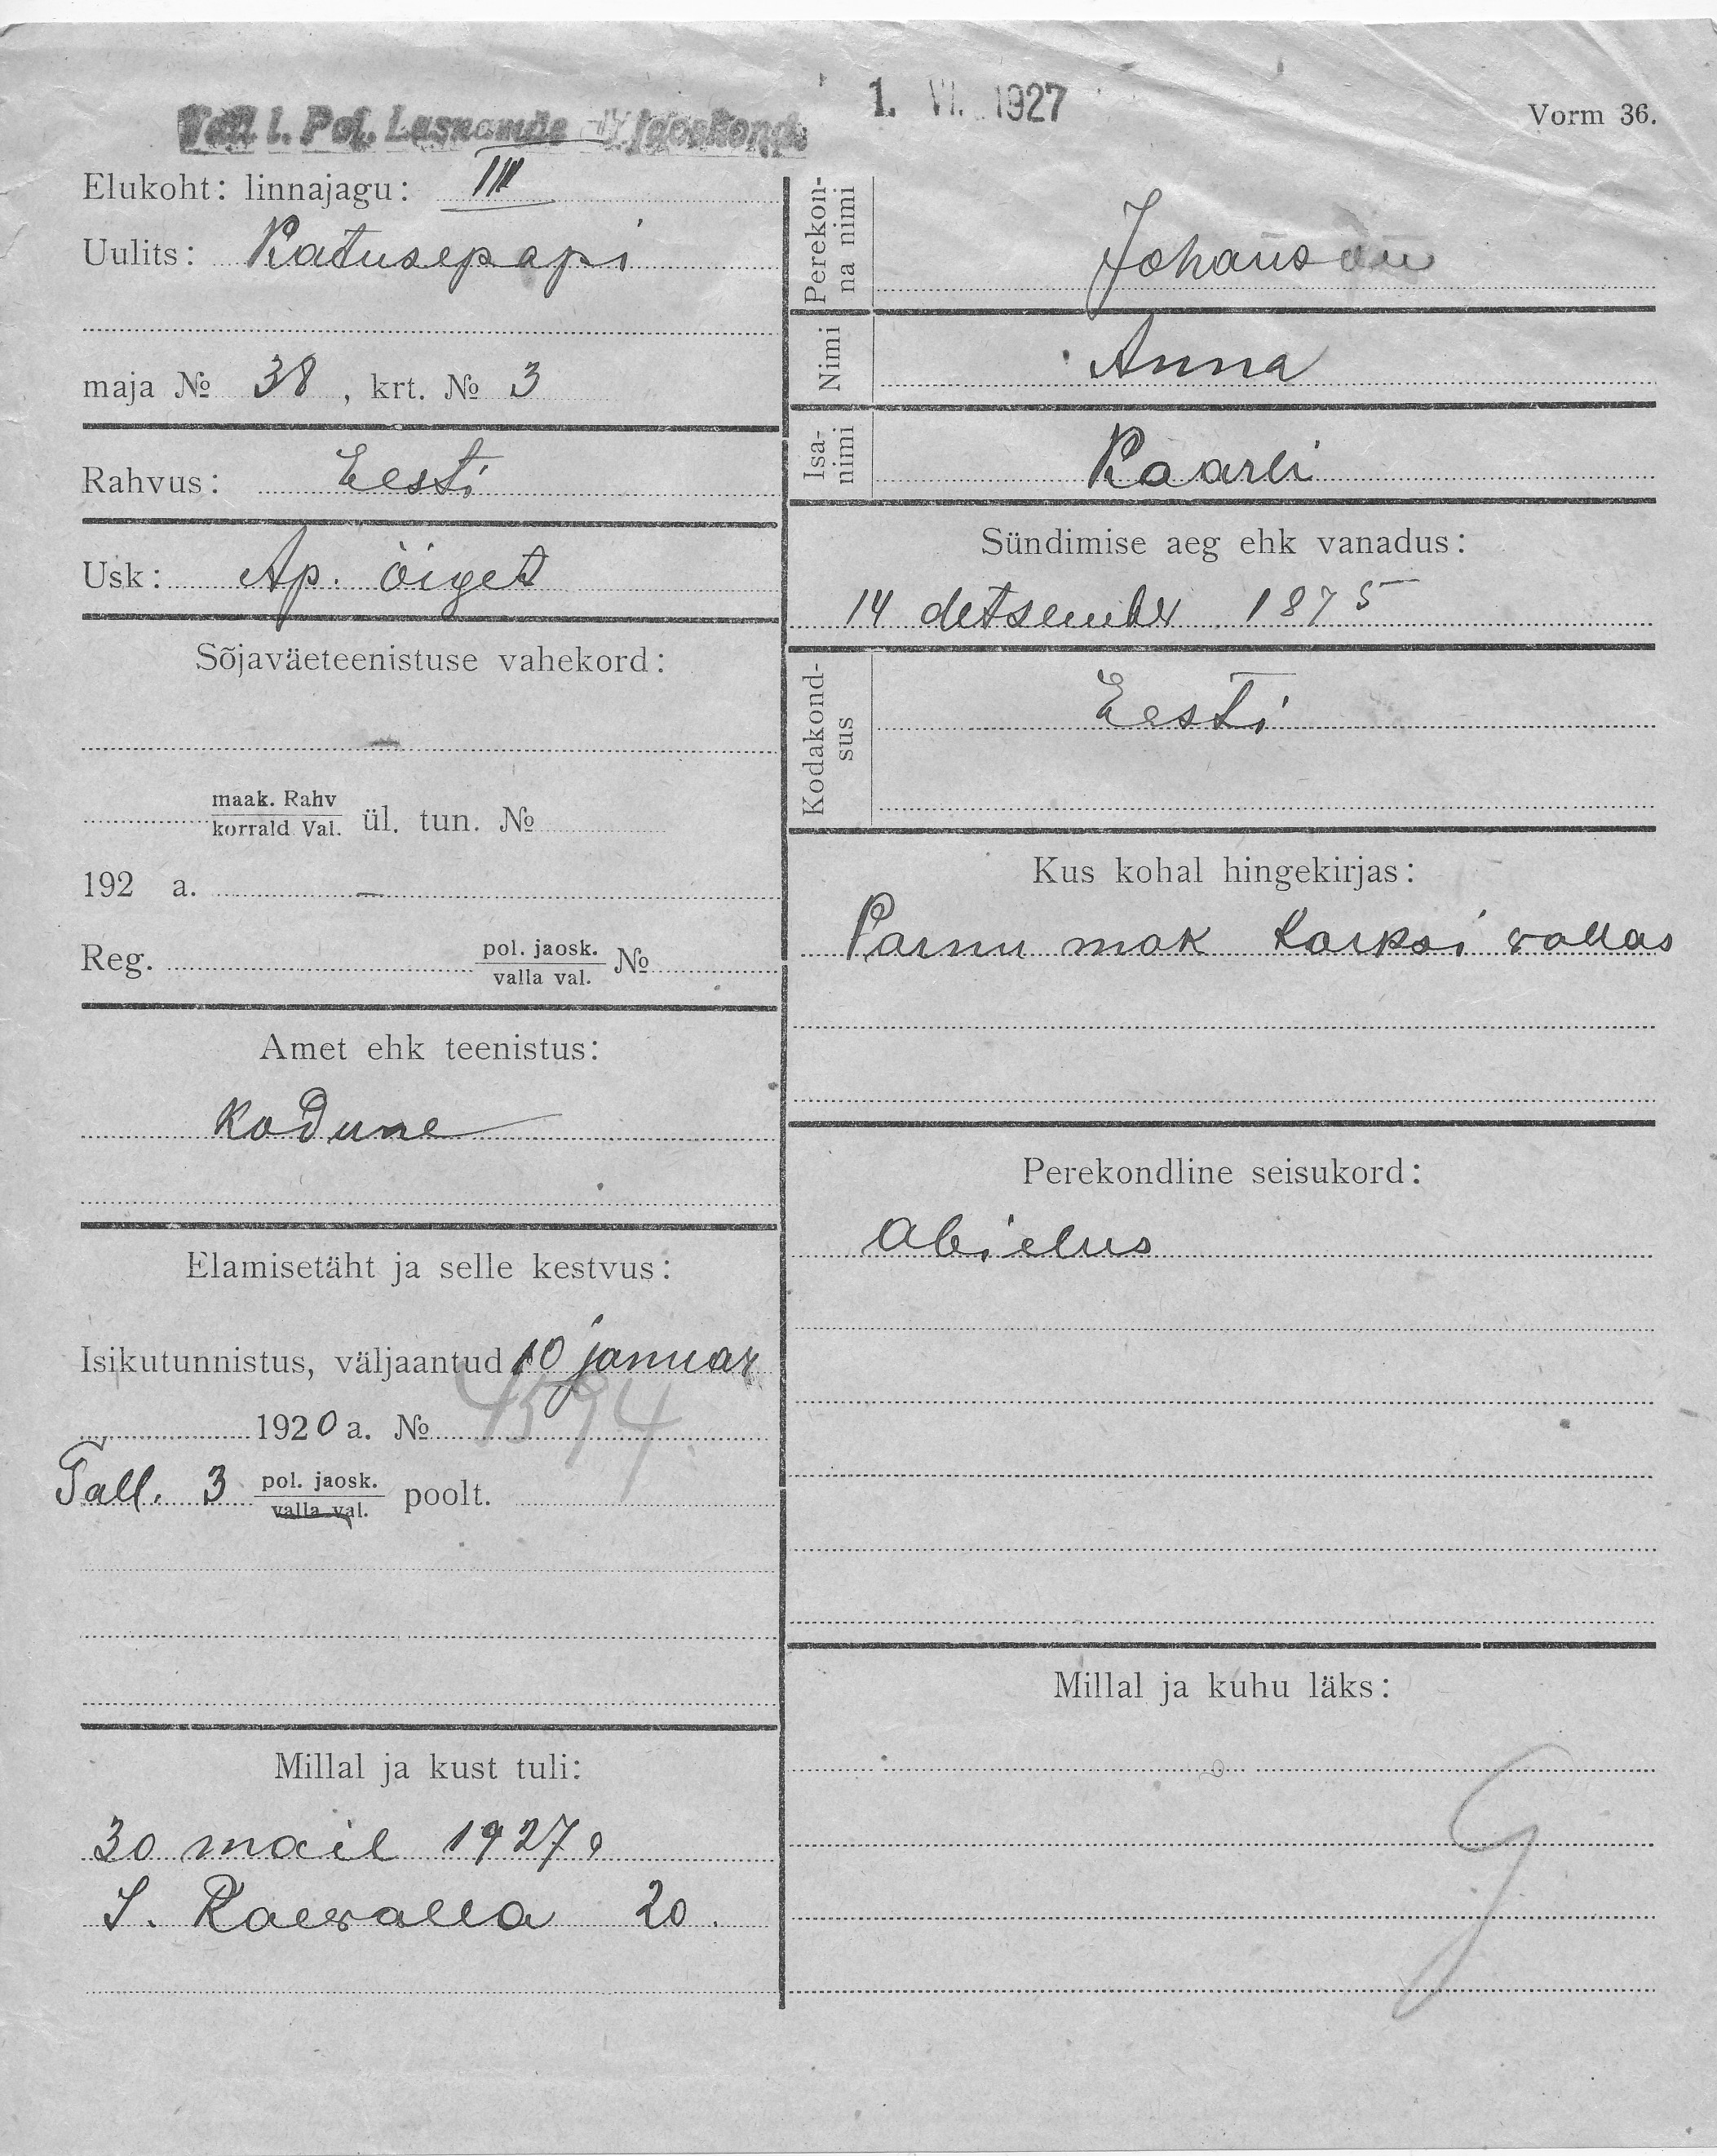 1. VI. 1927
Vorm 36.
Tall l. Pol. Lasnamäe jaoskond.
Elukoht: linnajagu: III
Uulits: Katusepapi
maja № 38, krt. № 3
Rahvus: Eesti
Usk: Ap. õiget
Sõjaväeteenistuse vahekord:
—
maak. Rahv
korrald Val. ül. tun. №
192 a. —
Reg. pol. jaosk.
valla val. №
Amet ehk teenistus:
Kodune
Elamisetäht ja selle kestvus:
Isikutunnistus, väljaantud 10 januar
1920 a. № 4594
Tall. 3 pol. jaosk.
valla val. poolt.
Millal ja kust tuli:
30 mail 1927 a
S. Kaevalla 20.
Perekon-
na nimi
Johanson
Nimi
Anna
Isa-
nimi
Kaarli
Sündimise aeg ehk vanadus:
14 detsember 1875
Kodakond-
sus
Eesti
Kus kohal hingekirjas:
Parnu mak Karksi vallas
Perekondline seisukord:
abielus
Millal ja kuhu läks: